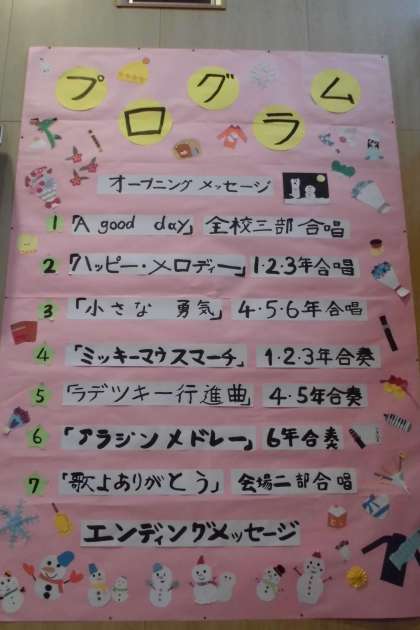 プログラム
オープニングメッセージ
1 「A good day」 全校三部合唱
2 「ハッピー・メロディー」 1・2・3年合唱
3 「小さな 勇気」 4・5・6年合唱
4 「ミッキーマウスマーチ」 1・2・3年合奏
5 「ラデツキー行進曲」 4・5年合奏
6 「アラジンメドレー」 6年合奏
7 「歌よありがとう」 会場二部合唱
エンディングメッセージ